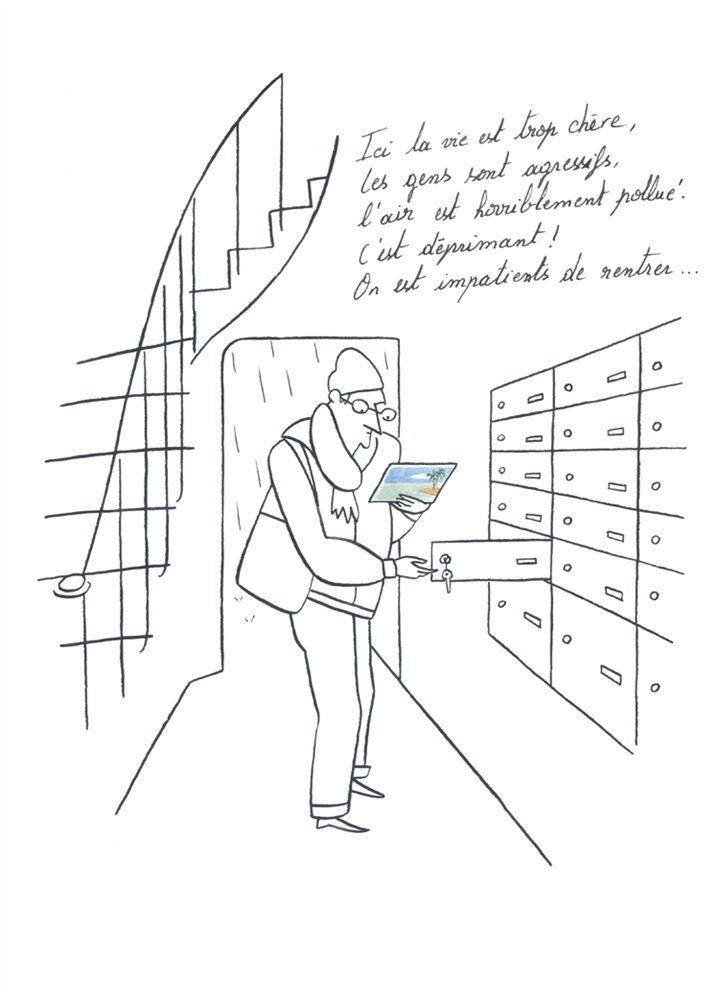 Ici la vie est trop chère,
Les gens sont agressifs,
l'air est horriblement pollué.
C'est déprimant !
On est impatients de rentrer...